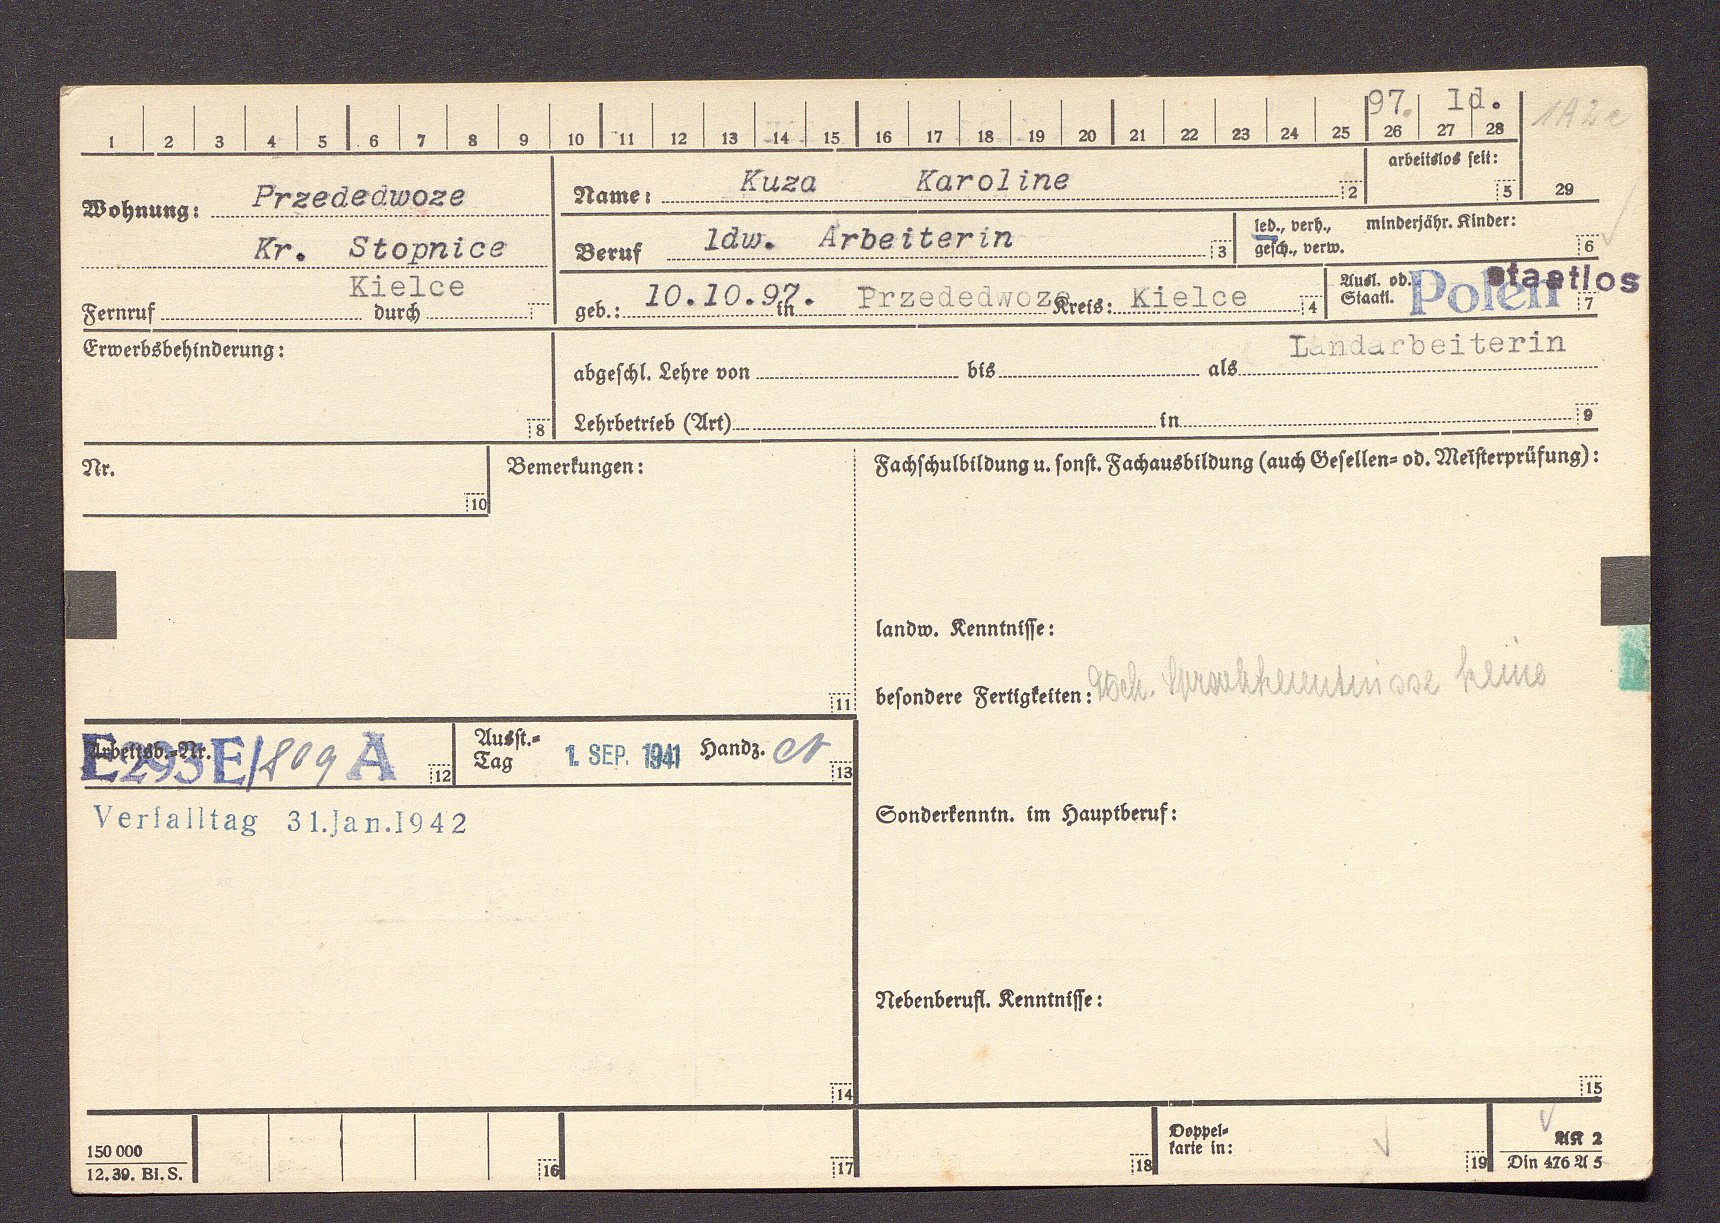 97. ld.
1 2 3 4 5 6 7 8 9 10 11 12 13 14 15 16 17 18 19 20 21 22 23 24 25 26 27 28 29
Wohnung: Przededwoze
Kr. Stopnice
Kielce
Fernruf durch
Name: Kuza Karoline 2
arbeitslos seit: 5
Beruf ldw. Arbeiterin 3
led., verh., minderjähr. Kinder:
gesch., verw. 6
geb.: 10.10.97. in Przededwoze Kreis: Kielce 4
Ausl. od. Staatl. Polen staatlos 7
Erwerbsbehinderung: 8
Landarbeiterin
abgeschl. Lehre von bis als
Lehrbetrieb (Art) in 9
Nr. 10
Bemerkungen: 11
Fachschulbildung u. sonst. Fachausbildung (auch Gesellen- od. Meisterprüfung):
landw. Kenntnisse:
besondere Fertigkeiten: keine
Arbeitsb.-Nr. E293E/809 A 12
Ausst.-Tag 1. SEP. 1941 Handz. 13
Verfalltag 31.Jan.1942
Sonderkenntn. im Hauptberuf:
Nebenberufl. Kenntnisse:
14 15
150 000
12. 39. Bl. S.
16 17 18
Doppel-
karte in: 19
AK 2
Din 476 A 5